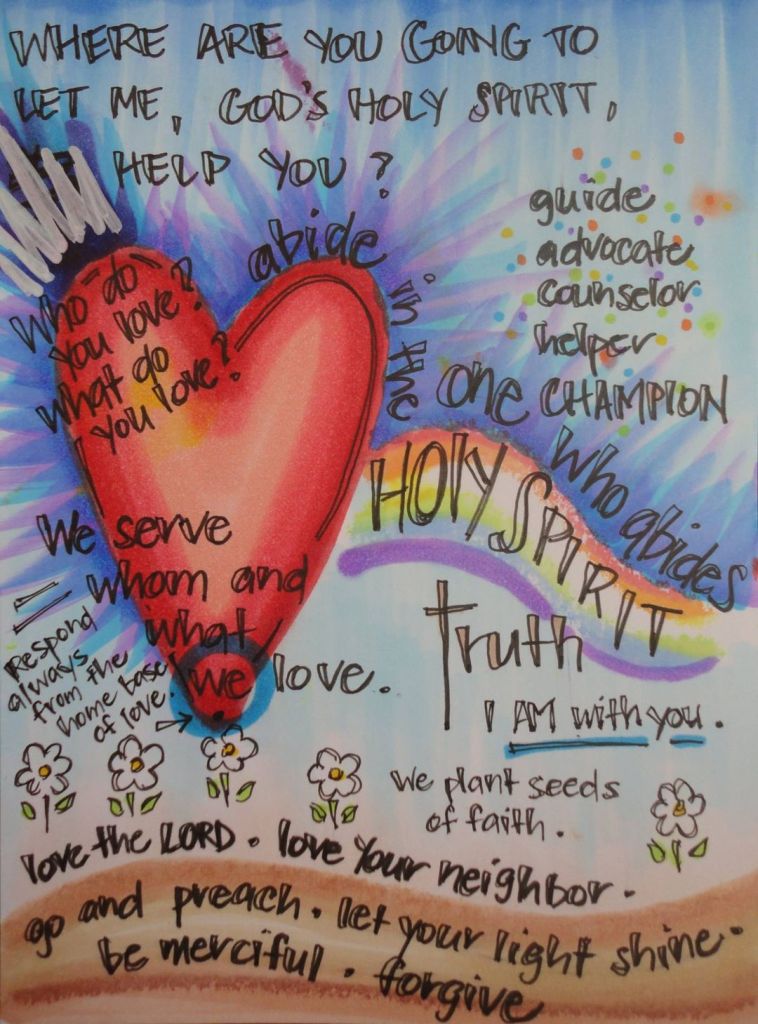 WHERE ARE YOU GOING TO
LET ME, GOD'S HOLY SPIRIT,
HELP YOU?
guide
advocate
counselor
helper
abide
in the
one CHAMPION
who abides
HOLY SPIRIT
Who do
you love?
What do
you love?
We serve
whom and
what
we love.
Respond
always
from the
home base
of love.
Truth
I AM with you.
we plant seeds
of faith.
love the LORD. love your neighbor.
go and preach. let your light shine.
be merciful. forgive